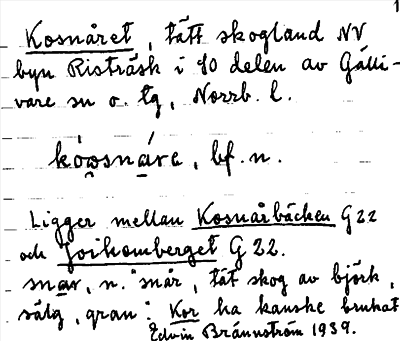 1
Kosnåret, tätt skogland NV
byn Risträsk i SO delen av Gälli-
vare sn o. tg, Norrb. l.
kóωsnáre, bf. n.
Ligger mellan Kosnårbäcken G22
och Joikomberget G 22.
snar, n. "snår, tät skog av björk,
sälg, gran". Kor ha kanske brukat
Edvin Brännström 1939.